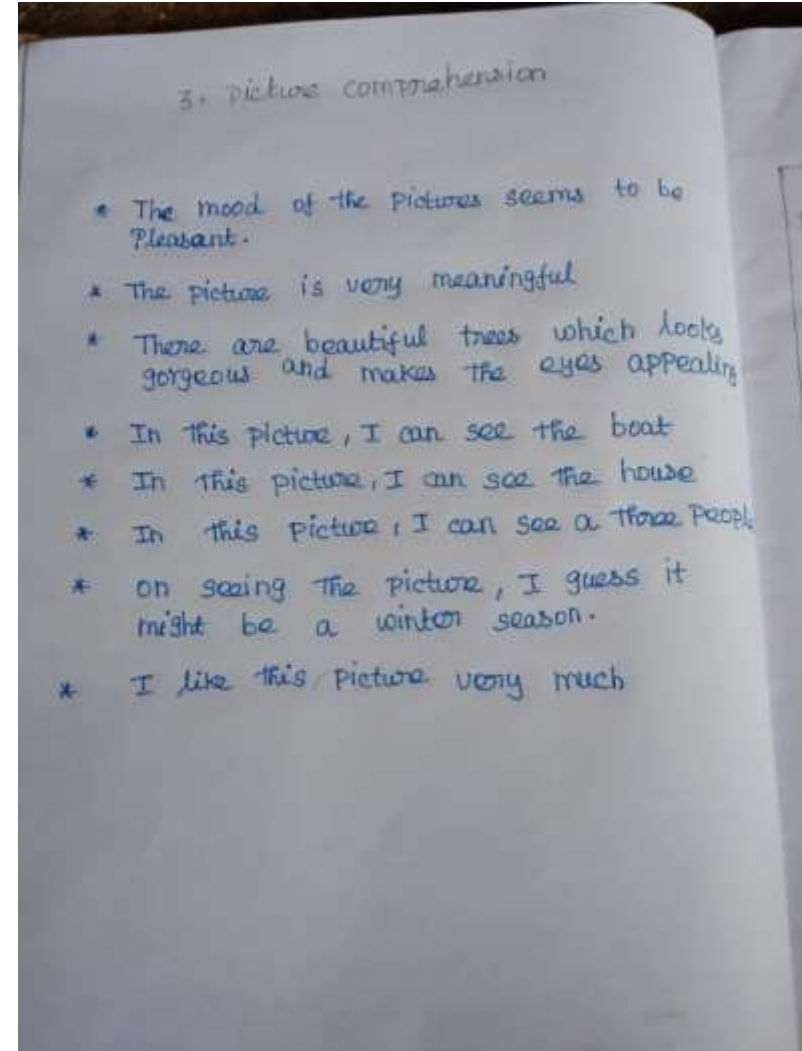 3. Picture comprehension
* The mood of the Pictures seems to be
Pleasant.
* The picture is very meaningful
* There are beautiful trees which looks
gorgeous and makes the eyes appealing
* In this picture, I can see the boat
* In this picture, I can see the house
* In this picture, I can see a three People
* on seeing the picture, I guess it
might be a winter season.
* I like this picture very much